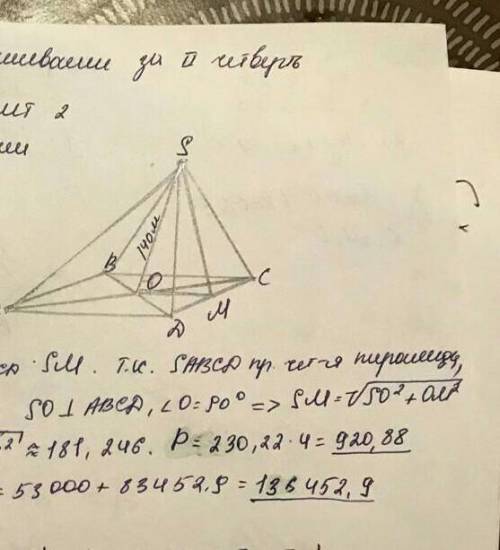 за II четверть
2
S
140м
B
O
C
M
D
SM. Т.к. SABCD пр. чет-я пирамида,
SO⊥ABCD, ∠O=90° => SM=√SO²+OM²
≈181,246. P=230,22·4=920,88
=53000+83452.9=136452,9